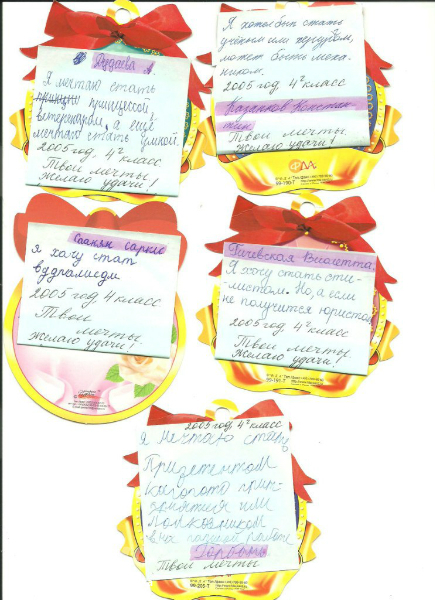 Дудаева А.
Я мечтаю стать
принцессой,
ветеринаром, а ещё
мечтаю стать умной.
2005 год, 4² класс
Твои мечты.
Желаю удачи!
Я хотел бы стать
учёным или
может быть меха-
ником.
2005 год 4² класс
Казанков Констан-
тин.
Твои мечты.
Желаю удачи!
99-195-Т
Саакян Саркис
я хочу стат
2005 год 4 класс
Твои
мечты.
Желаю удачи!
Гичевская Виолетта
Я хочу стать сти-
листом. Но, а если
не получится юристом
2005 год, 4² класс
Твои мечты
Желаю удачи!
99-197-Т
2005 год 4² класс
Я мечтаю стать
Призетентом
какогото при-
дприятия или
Полковником
на папиной работе
Твои мечты
99-205-Т